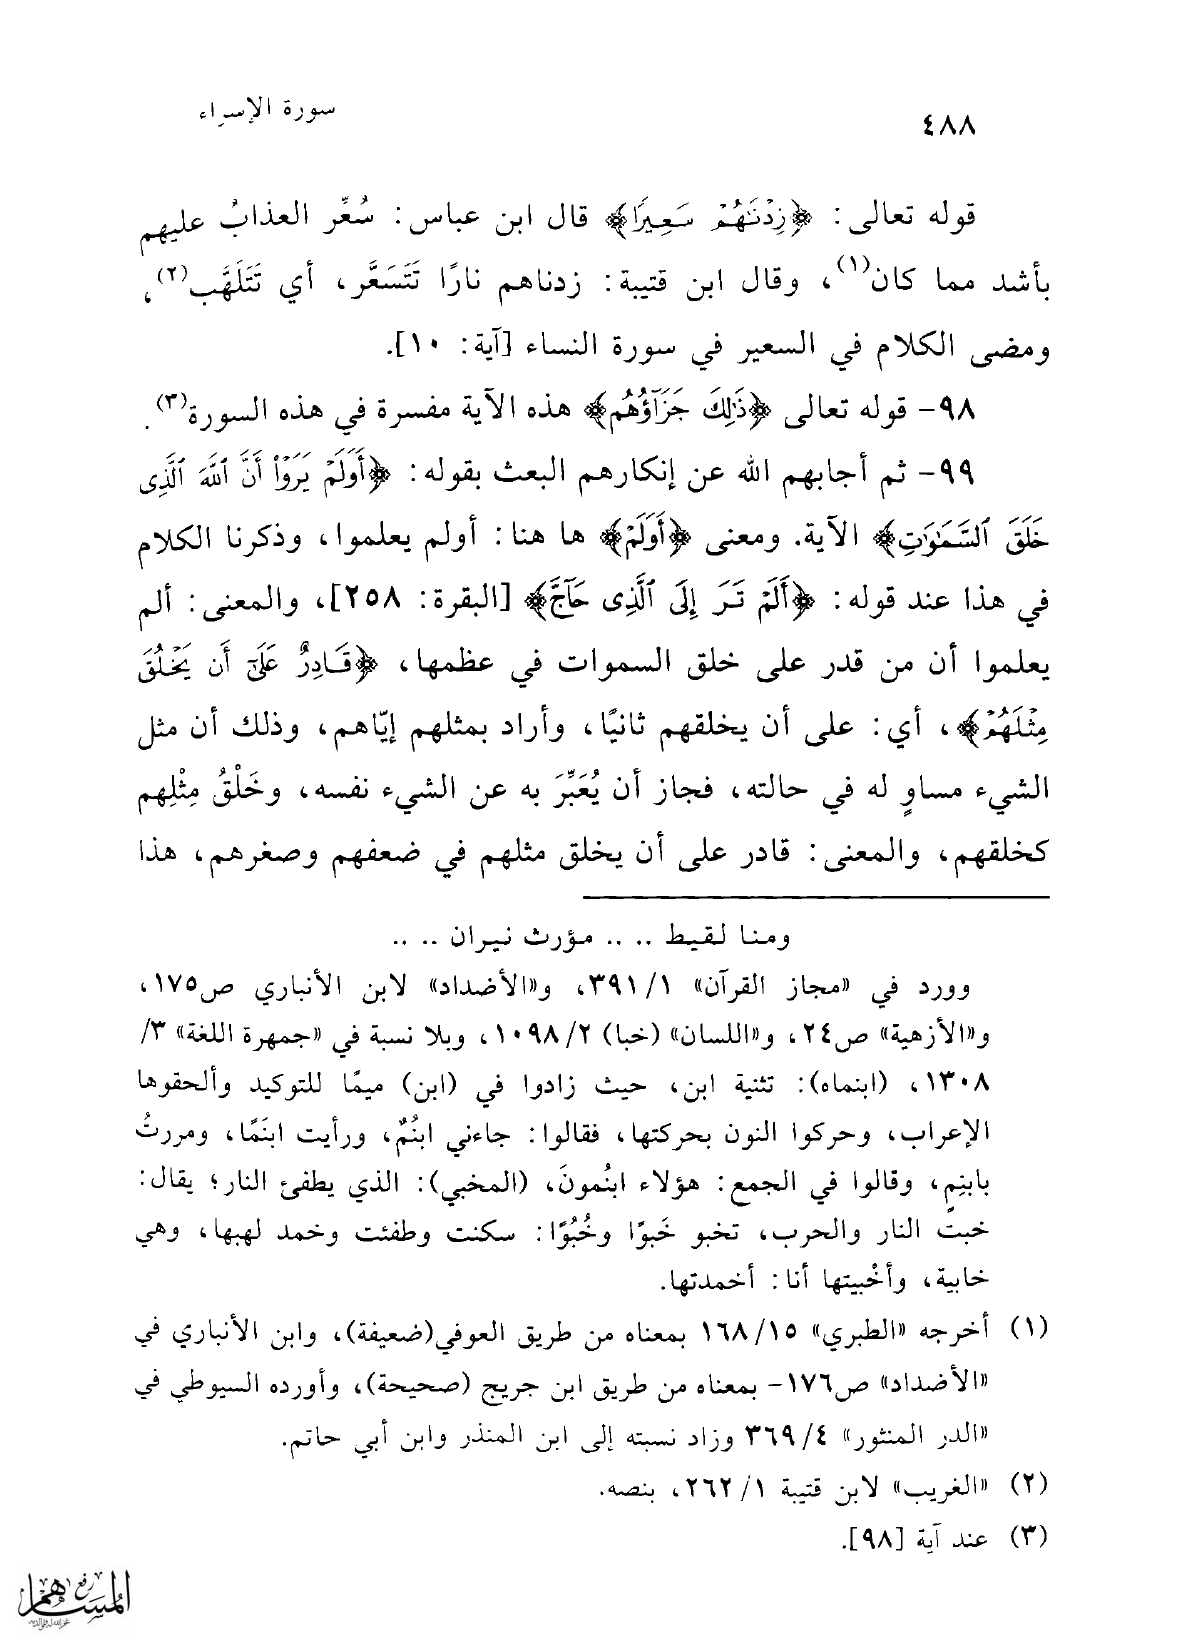 ٤٨٨
سورة الإسراء
قوله تعالى: ﴿زِدْنَٰهُمْ سَعِيرًا﴾ قال ابن عباس: سُعِّر العذابُ عليهم
بأشد مما كان(١)، وقال ابن قتيبة: زدناهم نارًا تَتَسَعَّر، أي تَتَلَهَّب(٢)،
ومضى الكلام في السعير في سورة النساء [آية: ١٠].
٩٨- قوله تعالى ﴿ذَٰلِكَ جَزَآؤُهُم﴾ هذه الآية مفسرة في هذه السورة(٣).
٩٩- ثم أجابهم الله عن إنكارهم البعث بقوله: ﴿أَوَلَمْ يَرَوْا۟ أَنَّ ٱللَّهَ ٱلَّذِى
خَلَقَ ٱلسَّمَٰوَٰتِ﴾ الآية. ومعنى ﴿أَوَلَمْ﴾ ها هنا: أولم يعلموا، وذكرنا الكلام
في هذا عند قوله: ﴿أَلَمْ تَرَ إِلَى ٱلَّذِى حَآجَّ﴾ [البقرة: ٢٥٨]، والمعنى: ألم
يعلموا أن من قدر على خلق السموات في عظمها، ﴿قَادِرٌ عَلَىٰٓ أَن يَخْلُقَ
مِثْلَهُمْ﴾، أي: على أن يخلقهم ثانيًا، وأراد بمثلهم إيّاهم، وذلك أن مثل
الشيء مساوٍ له في حالته، فجاز أن يُعَبِّرَ به عن الشيء نفسه، وخَلْقُ مِثْلِهم
كخلقهم، والمعنى: قادر على أن يخلق مثلهم في ضعفهم وصغرهم، هذا
ومنا لقيط .. .. مؤرث نيران .. ..
وورد في «مجاز القرآن» ١/ ٣٩١، و«الأضداد» لابن الأنباري ص١٧٥،
و«الأزهية» ص٢٤، و«اللسان» (خبا) ٢/ ١٠٩٨، وبلا نسبة في «جمهرة اللغة» ٣/
١٣٠٨، (ابنماه): تثنية ابن، حيث زادوا في (ابن) ميمًا للتوكيد وألحقوها
الإعراب، وحركوا النون بحركتها، فقالوا: جاءني ابنُمٌ، ورأيت ابنَمًا، ومررتُ
بابنِمٍ، وقالوا في الجمع: هؤلاء ابنُمونَ، (المخبي): الذي يطفئ النار؛ يقال:
خبت النار والحرب، تخبو خَبوًا وخُبُوًا: سكنت وطفئت وخمد لهبها، وهي
خابية، وأخْبيتها أنا: أخمدتها.
(١) أخرجه «الطبري» ١٥/ ١٦٨ بمعناه من طريق العوفي(ضعيفة)، وابن الأنباري في
«الأضداد» ص١٧٦- بمعناه من طريق ابن جريج (صحيحة)، وأورده السيوطي في
«الدر المنثور» ٤/ ٣٦٩ وزاد نسبته إلى ابن المنذر وابن أبي حاتم.
(٢) «الغريب» لابن قتيبة ١/ ٢٦٢، بنصه.
(٣) عند آية [٩٨].
رفع
المساهم